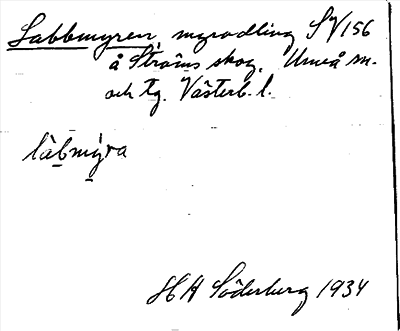 Labbmyren, myrodling SV 156
å Ströms skog, Umeå sn.
och tg. Västerb. l.
làbmy̆ra
H H Söderberg 1934